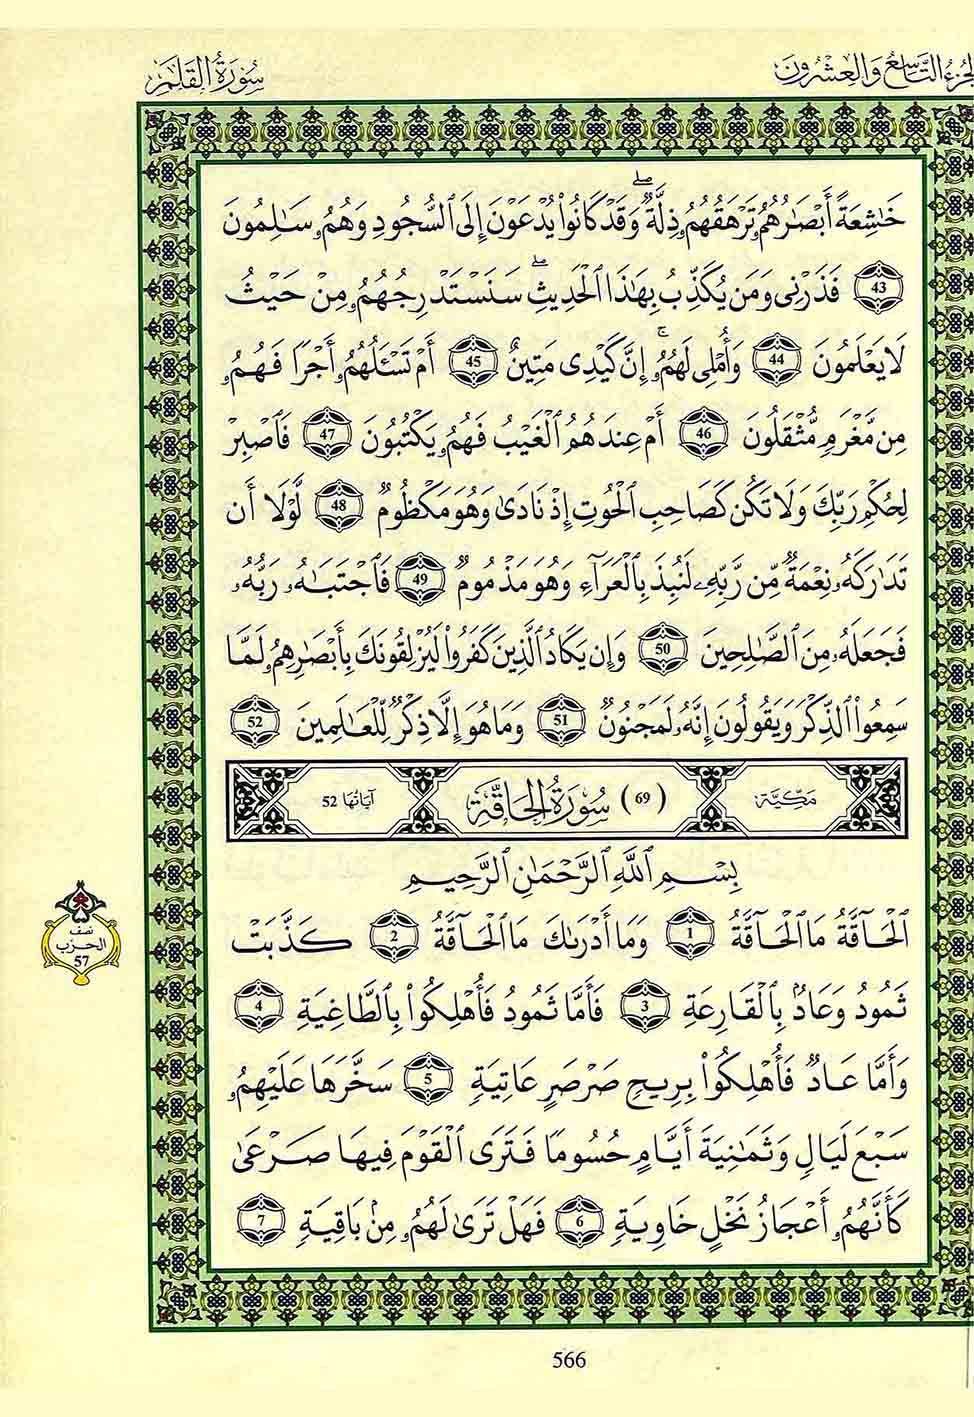 الجزء التاسع والعشرون
سورة القلم
خَٰشِعَةً أَبْصَٰرُهُمُۥ تَرْهَقُهُمُۥ ذِلَّةٌۖ وَقَدْ كَانُوا۟ يُدْعَوْنَ إِلَى ٱلسُّجُودِ وَهُمُۥ سَٰلِمُونَ
43 فَذَرْنِى وَمَن يُكَذِّبُ بِهَٰذَا ٱلْحَدِيثِۖ سَنَسْتَدْرِجُهُمُۥ مِنْ حَيْثُ
لَا يَعْلَمُونَ 44 وَأُمْلِى لَهُمُۥٓۚ إِنَّ كَيْدِى مَتِينٌ 45 أَمْ تَسْـَٔلُهُمُۥٓ أَجْرًا فَهُمُۥ
مِن مَّغْرَمٍ مُّثْقَلُونَ 46 أَمْ عِندَهُمُ ٱلْغَيْبُ فَهُمُۥ يَكْتُبُونَ 47 فَٱصْبِرْ
لِحُكْمِ رَبِّكَ وَلَا تَكُن كَصَاحِبِ ٱلْحُوتِ إِذْ نَادَىٰ وَهُوَ مَكْظُومٌ 48 لَّوْلَآ أَن
تَدَٰرَكَهُۥ نِعْمَةٌ مِّن رَّبِّهِۦ لَنُبِذَ بِٱلْعَرَآءِ وَهُوَ مَذْمُومٌ 49 فَٱجْتَبَٰهُۥ رَبُّهُۥ
فَجَعَلَهُۥ مِنَ ٱلصَّٰلِحِينَ 50 وَإِن يَكَادُ ٱلَّذِينَ كَفَرُوا۟ لَيُزْلِقُونَكَ بِأَبْصَٰرِهِمُۥ لَمَّا
سَمِعُوا۟ ٱلذِّكْرَ وَيَقُولُونَ إِنَّهُۥ لَمَجْنُونٌ 51 وَمَا هُوَ إِلَّا ذِكْرٌ لِّلْعَٰلَمِينَ 52
مَكيّة (69) سُورَةُ الحَاقَّة آيَاتُهَا 52
بِسْمِ ٱللَّهِ ٱلرَّحْمَٰنِ ٱلرَّحِيمِ
ٱلْحَآقَّةُ مَا ٱلْحَآقَّةُ 1 وَمَآ أَدْرَىٰكَ مَا ٱلْحَآقَّةُ 2 كَذَّبَتْ
ثَمُودُ وَعَادٌۢ بِٱلْقَارِعَةِ 3 فَأَمَّا ثَمُودُ فَأُهْلِكُوا۟ بِٱلطَّاغِيَةِ 4
وَأَمَّا عَادٌ فَأُهْلِكُوا۟ بِرِيحٍ صَرْصَرٍ عَاتِيَةٍ 5 سَخَّرَهَا عَلَيْهِمُۥ
سَبْعَ لَيَالٍ وَثَمَٰنِيَةَ أَيَّامٍ حُسُومًا فَتَرَى ٱلْقَوْمَ فِيهَا صَرْعَىٰ
كَأَنَّهُمُۥٓ أَعْجَازُ نَخْلٍ خَاوِيَةٍ 6 فَهَلْ تَرَىٰ لَهُمُۥ مِنۢ بَاقِيَةٍ 7
نصف
الحزب
57
566